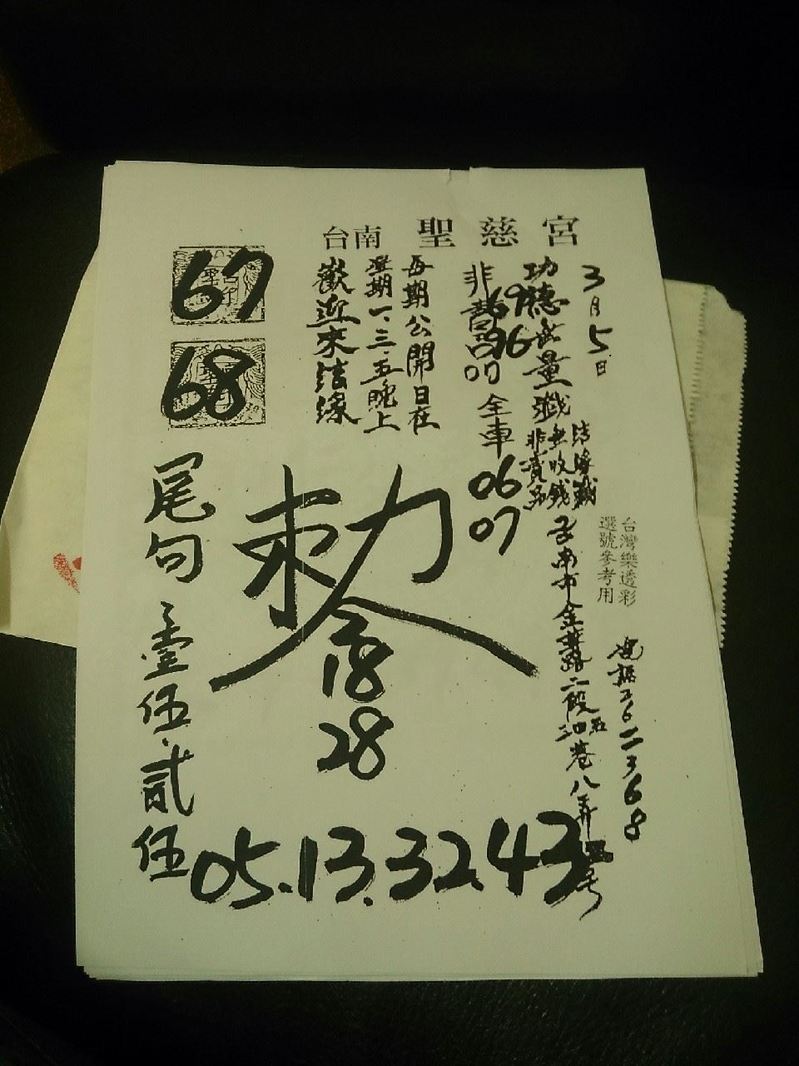 台南 聖慈宮
3月5日
功德無量
非賣品
69
96
全車
06
07
每期公開日在
星期一.三.五晚上
歡迎來結緣
67
68
結緣
無收錢
非賣品
台灣樂透彩
選號參考用
台南市金華路二段
巷八弄
號
電話
敕令
18
28
尾句
壹伍.貳伍
05.13.32.43